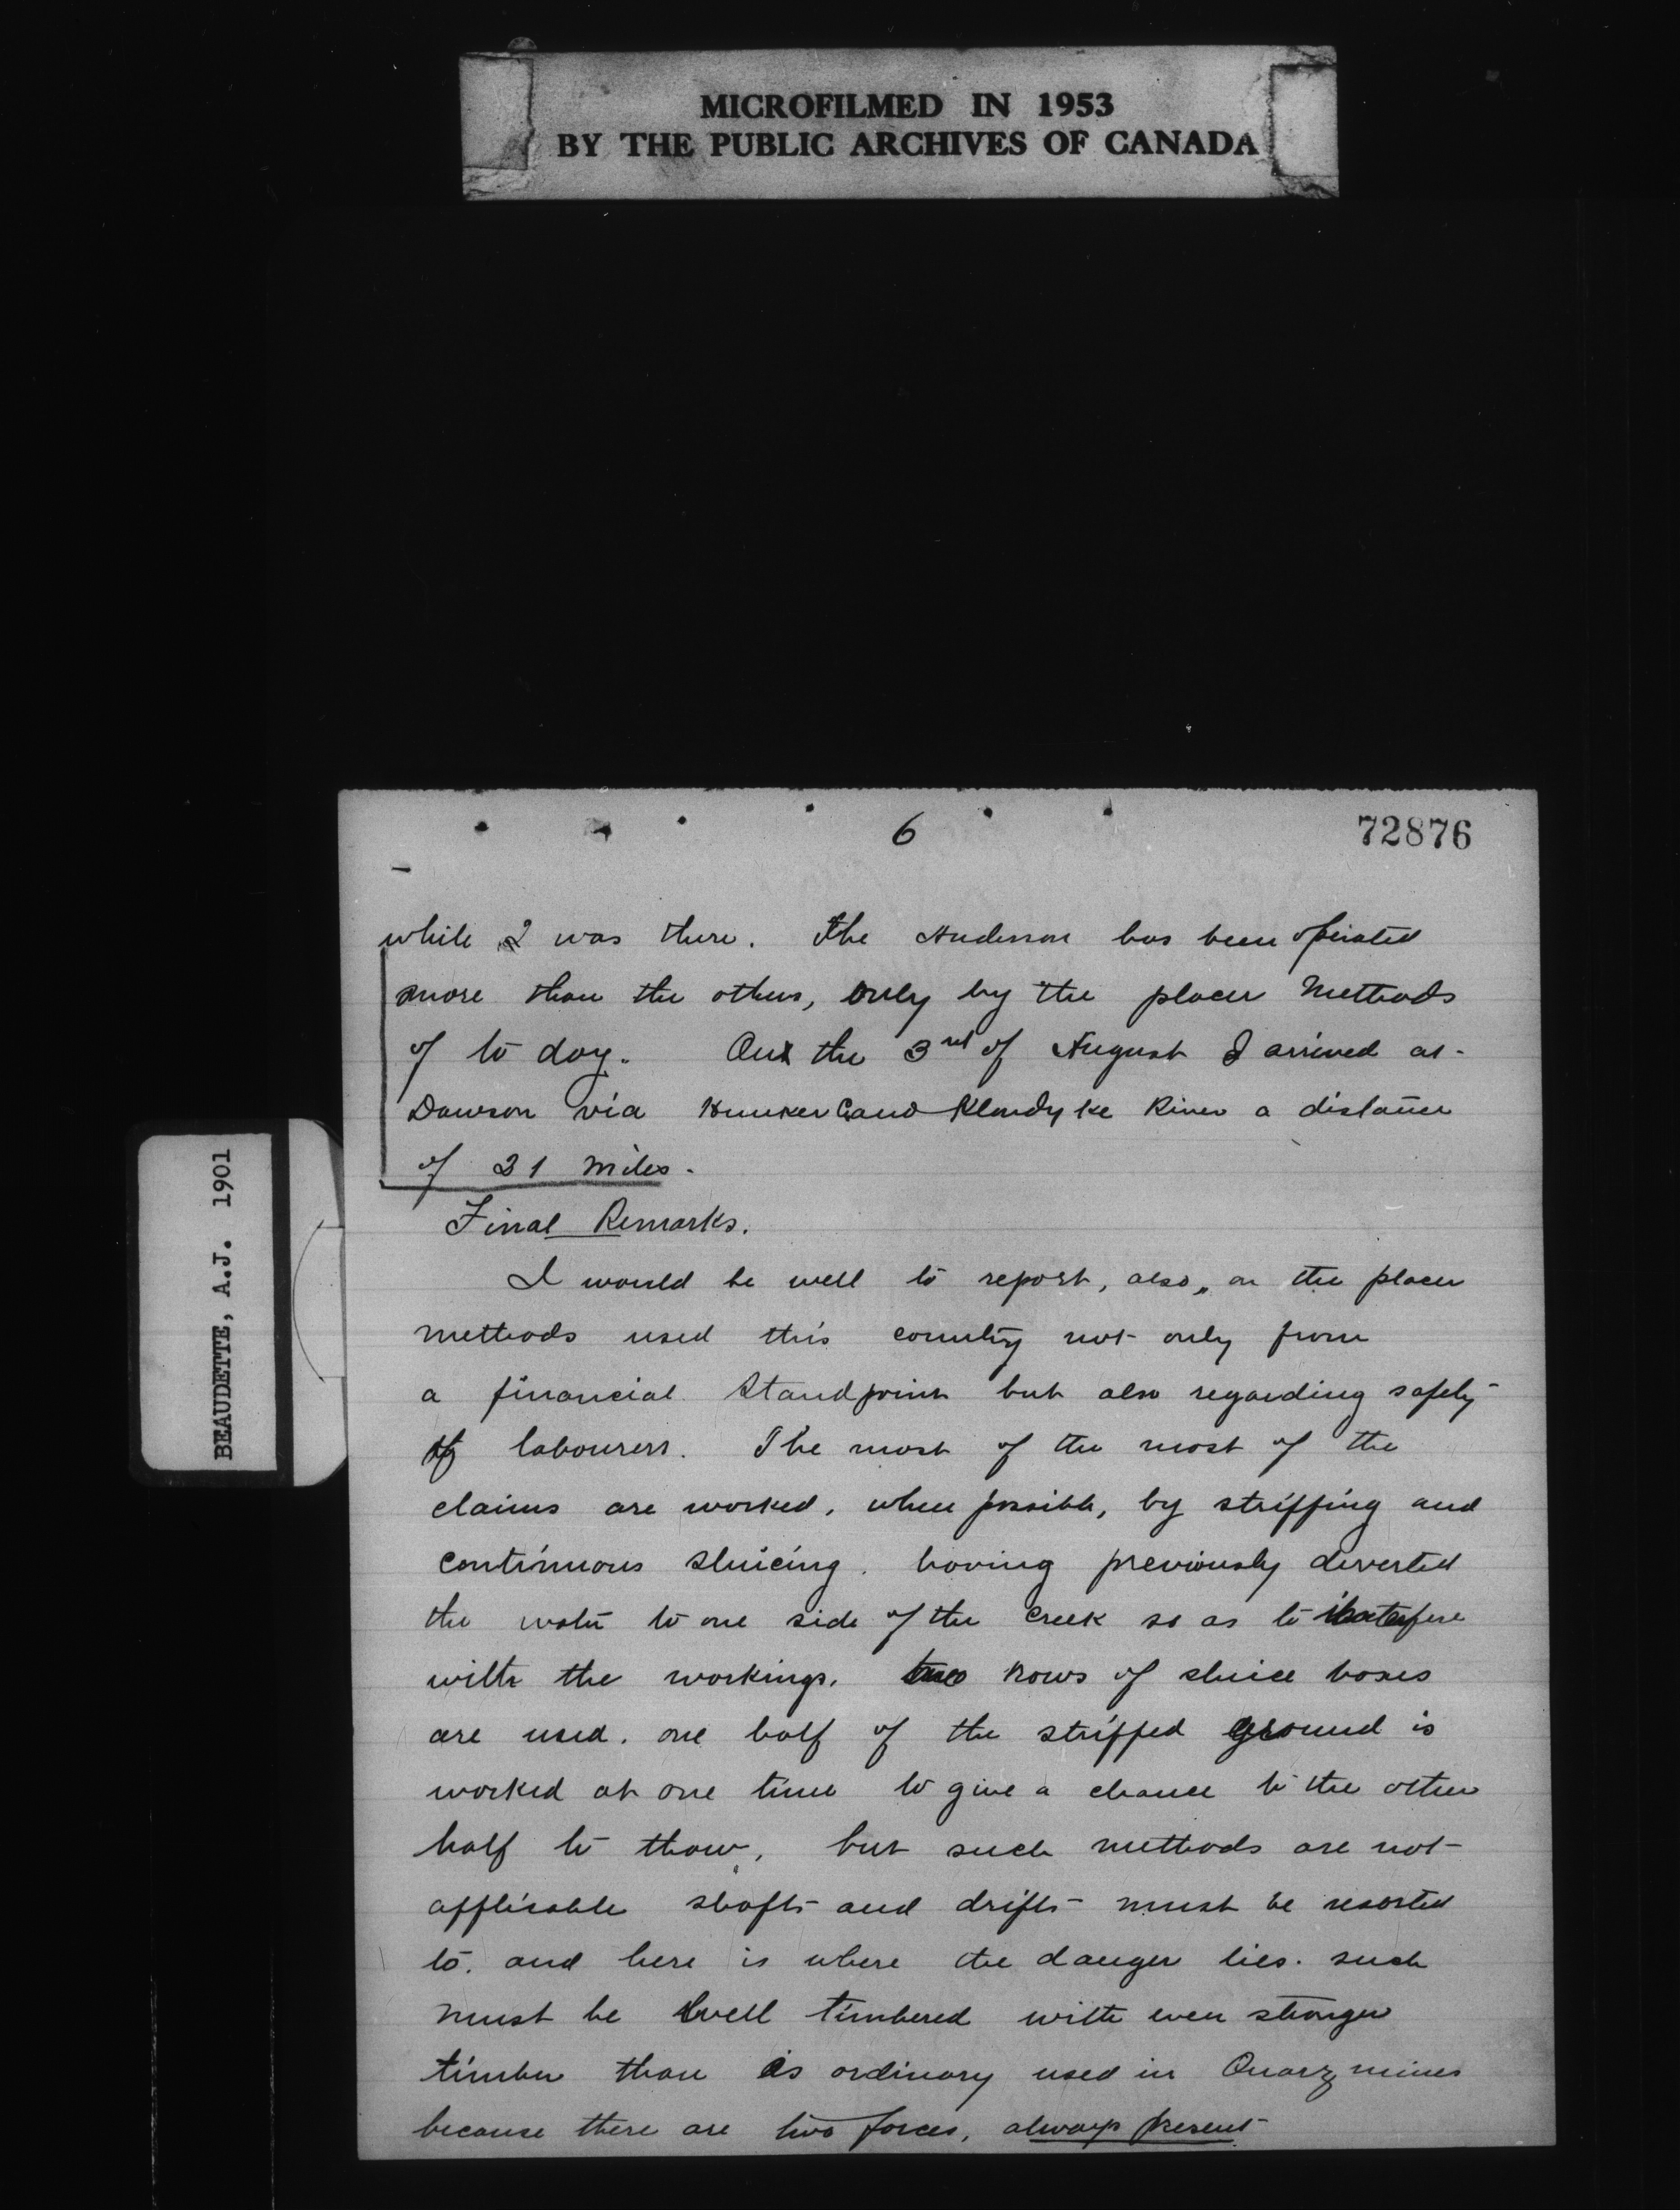 MICROFILMED IN 1953
BY THE PUBLIC ARCHIVES OF CANADA
6
72876
while I was there. The Anderson has been operated
more than the others, only by the placer methods
of to day. On the 3rd of August I arrived at
Dawson via Hunker C and Klondyke River a distance
of 21 miles.
Final Remarks.
I would be well to report, also, on the placer
methods used this country not only from
a financial standpoint but also regarding safety
of labourers. The most of the most of the
claims are worked, when possible, by stripping and
continuous sluicing. having previously diverted
the water to one side of the creek so as to interfere
with the workings. two rows of sluice boxes
are used. one half of the stripped ground is
worked at one time to give a chance to the other
half to thaw, but such methods are not
applicable shafts and drifts must be resorted
to. and here is where the danger lies. such
must be well timbered with even stronger
timber than is ordinary used in Quarz mines
because there are two forces, always present
BEAUDETTE, A.J. 1901